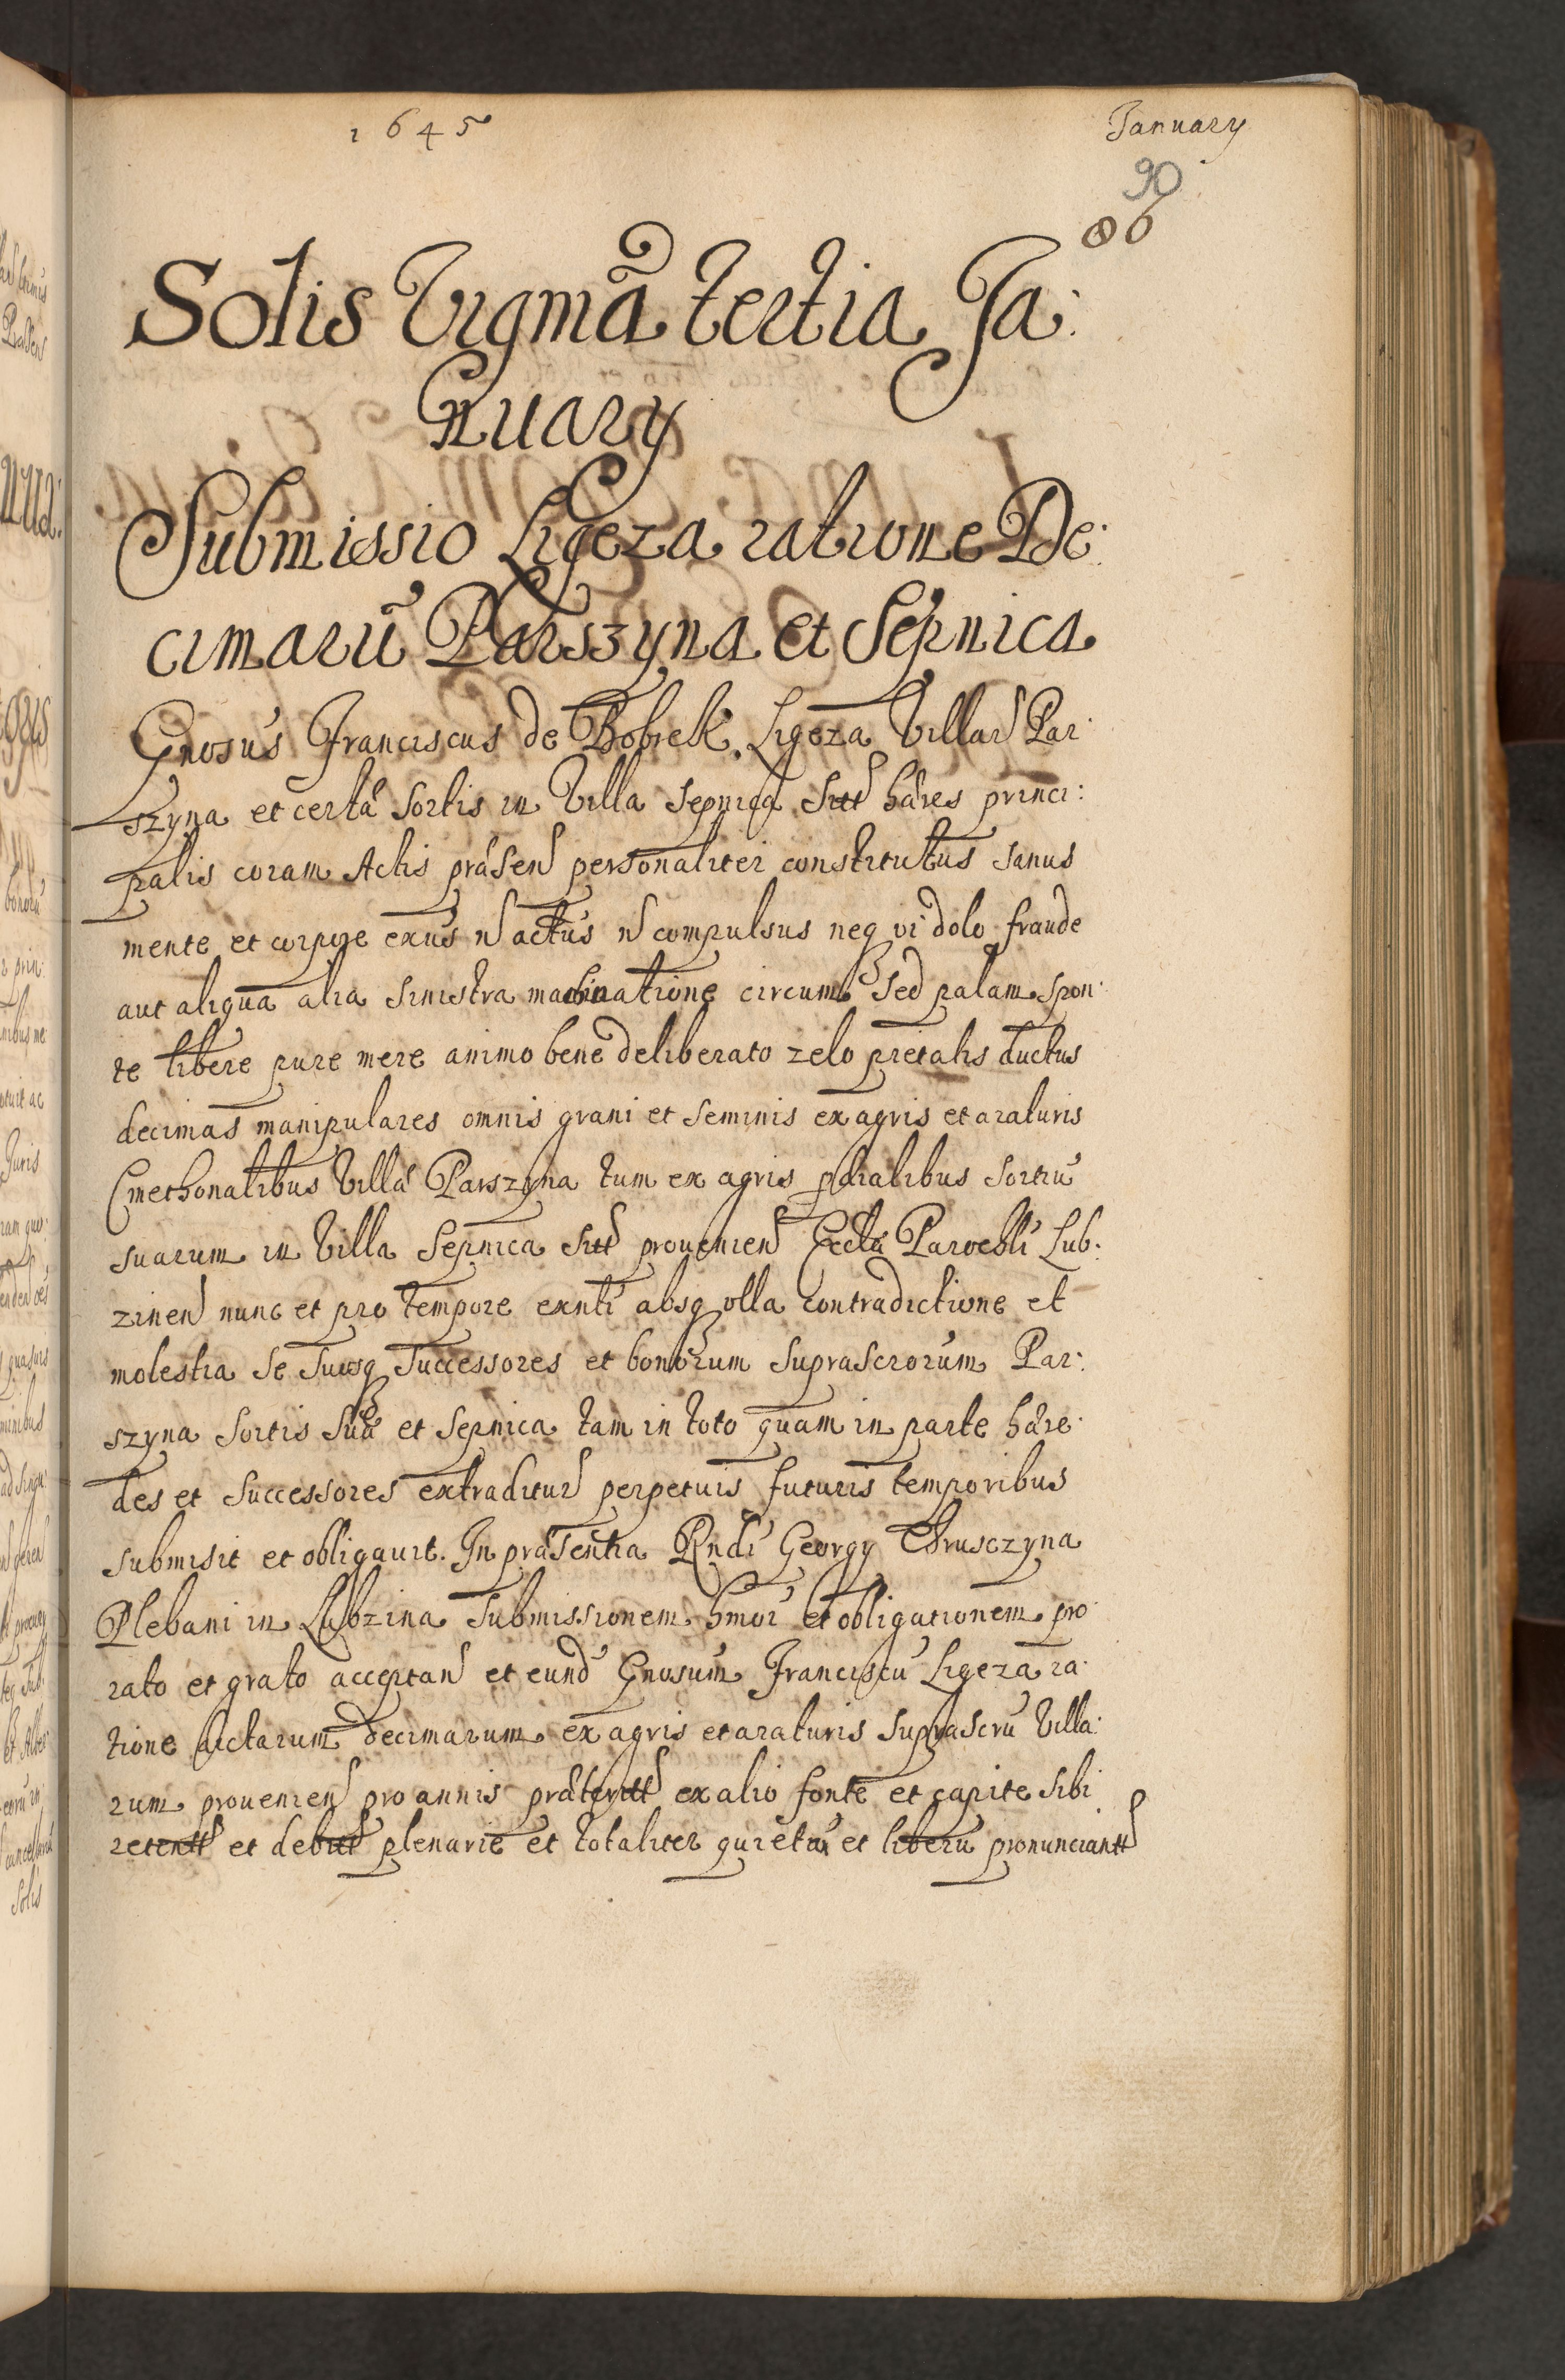 1645
January
90
86
Solis Vigmã tertia Ja:
nuary
Submissio Ligeza ratione De:
cimarũ Parszyna et Sepnica
Gnosus Franciscus de Bobrek Ligeza Villar Par:
szyna et certa sortis in Villa Sepnica sitt hæres princi:
palis coram Actis præsen personaliter constitutus sanus
mente et corpore exns n actus n compulsus neq vi dolo fraude
aut aliqua alia sinistra machinatione circum sed palam spon:
te libere pure mere animo bene deliberato zelo pietatis ductus
decimas manipulares omnis grani et seminis ex agris et araturis
Cmethonalibus Villæ Parszyna tum ex agris prdialibus sortiu
suarum in Villa Sepnica sitt prouenien Eccłæ Parochli Lub:
zinen nunc et pro tempore exnti absq vlla contradictione et
molestia se suosq successores et bonorum suprascrorum Par:
szyna sortis suæ et Sepnica tam in toto quam in parte hære:
des et successores extraditur perpetuis futuris temporibus
submisit et obligauit. In præsentia Rndi Georgy Chrusczyna
Plebani in Lubzina submissionem hmoi et obligationem pro
rato et grato acceptan et eund Gnosum Franciscũ Ligeza ra:
tione dictarum decimarum ex agris et araturis suprascru Villa:
rum prouenien pro annis præteritt ex alio fonte et capite sibi
retentt et debitt plenarie et totaliter quietũ et liberũ pronunciantt